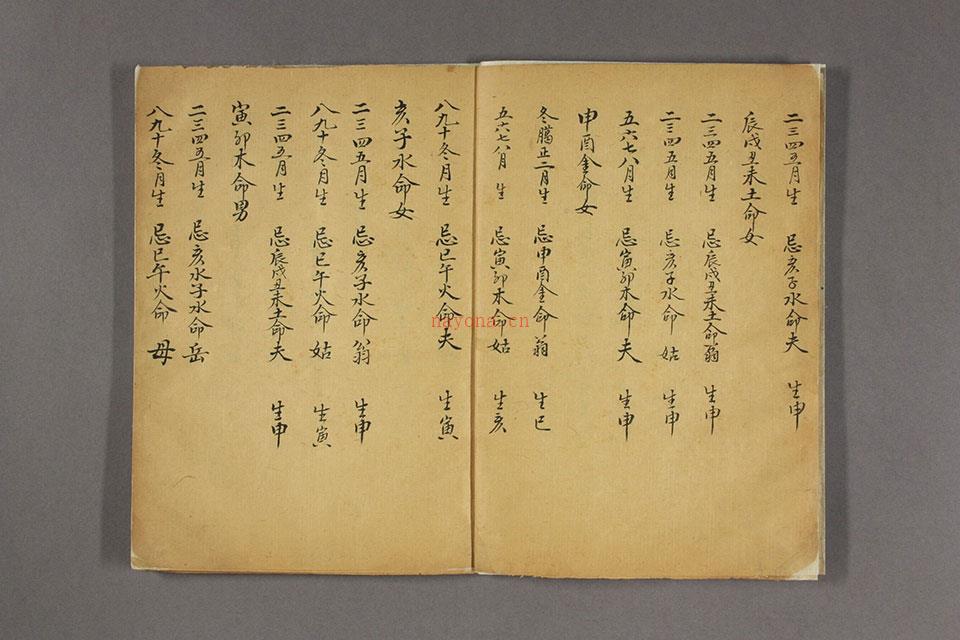 二三四五月生 忌亥子水命夫 生申
辰戌丑未土命女
二三四五月生 忌辰戌丑未土命翁 生申
二三四五月生 忌亥子水命姑 生申
五六七八月生 忌寅卯木命夫 生申
申酉金命女
冬臘正二月生 忌申酉金命翁 生巳
五六七八月生 忌寅卯木命姑 生亥
八九十冬月生 忌巳午火命夫 生寅
亥子水命女
二三四五月生 忌亥子水命翁 生申
八九十冬月生 忌巳午火命姑 生寅
二三四五月生 忌辰戌丑未土命夫 生申
寅卯木命男
二三四五月生 忌亥水子水命岳
八九十冬月生 忌巳午火命母
nayona.cn